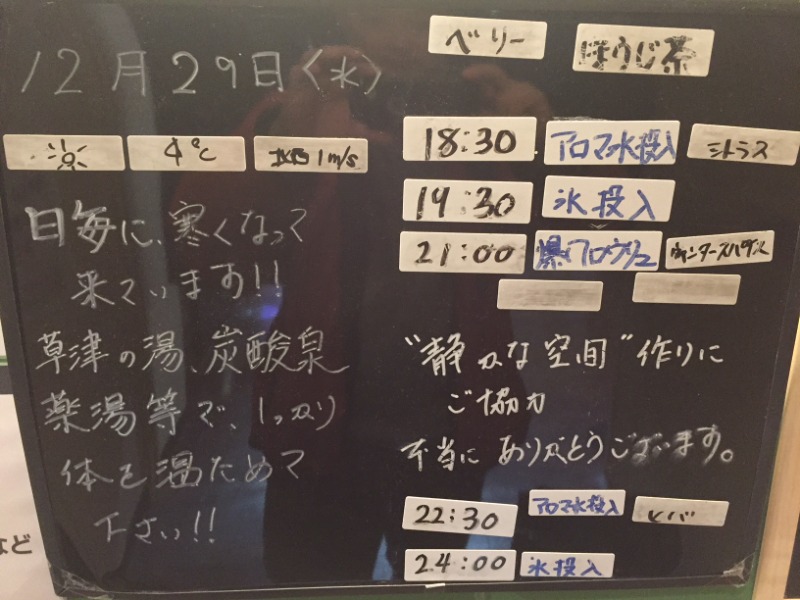 12月29日(水)
4℃
北西1m/s
日毎に、寒くなって
来ています!!
草津の湯、炭酸泉
薬湯等で、しっかり
体を温ためて
下さい!!
ベリー
ほうじ茶
18:30 アロマ水投入 シトラス
19:30 氷投入
21:00 爆アロウリュ ウィンタースパイス
"静かな空間"作りに
ご協力
本当にありがとうございます。
22:30 アロマ水投入 ヒバ
24:00 氷投入
など